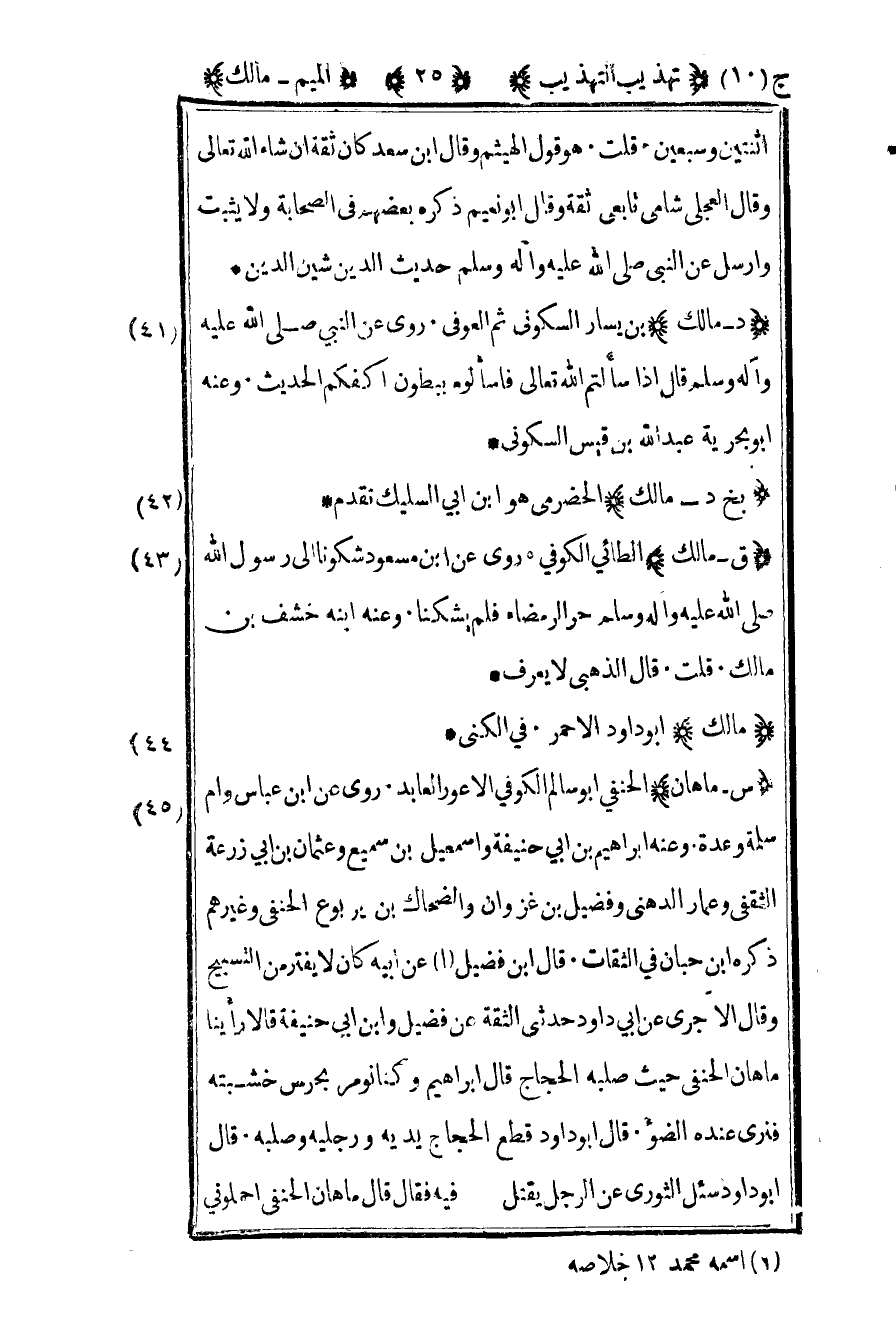 ج (١٠) ﴿ تهذيب التهذيب ﴾ ﴿ ٢٥ ﴾ ﴿ الميم ـ مالك ﴾
اثنتين وسبعين ٠ قلت ٠ هو قول الهيثم وقال ابن سعد كان ثقة ان شاء الله تعالى
وقال العجلى شامى تابعى ثقة وقال ابو نعيم ذكره بعضهم فى الصحابة ولا يثبت
وارسل عن النبى صلى الله عليه وآله وسلم حديث الدين شين الدين *
(٤١) ﴿ د ـ مالك ﴾ بن يسار السكونى ثم العوفى ٠ روى عن النبي صلى الله عليه
وآله وسلم قال اذا سألتم الله تعالى فاسألوه ببطون اكفكم الحديث ٠ وعنه
ابو بحرية عبد الله بن قيس السكونى *
(٤٢) ﴿ بخ د ـ مالك ﴾ الحضرمى هو ابن ابي السليك تقدم *
(٤٣) ﴿ ق ـ مالك ﴾ الطائي الكوفي ٠ روى عن ابن مسعود شكونا الى رسول الله
صلى الله عليه وآله وسلم حر الرمضاء فلم يشكنا ٠ وعنه ابنه خشف بن
مالك ٠ قلت ٠ قال الذهبى لا يعرف *
(٤٤ ﴿ مالك ﴾ ابو داود الاحمر ٠ في الكنى *
(٤٥) ﴿ س ـ ماهان ﴾ الحنفي ابو سالم الكوفي الاعور العابد ٠ روى عن ابن عباس وام
سلمة وعدة ٠ وعنه ابراهيم بن ابي حنيفة واسمعيل بن سميع وعثمان بن ابي زرعة
الثقفى وعمار الدهنى وفضيل بن غزوان والضحاك بن يربوع الحنفى وغيرهم
ذكره ابن حبان في الثقات ٠ قال ابن فضيل (١) عن أبيه كان لا يفتر من التسبيح
وقال الآجرى عن ابي داود حدثنى الثقة عن فضيل وابن ابي حنيفة قالا رأينا
ماهان الحنفى حيث صلبه الحجاج قال ابراهيم وكنا نومر بحرس خشبته
فنرى عنده الضوء ٠ قال ابو داود قطع الحجاج يديه ورجليه وصلبه ٠ قال
ابو داود سئل الثورى عن الرجل يقتل فيه فقال قال ماهان الحنفى احملوني
(١) اسمه محمد ١٢ خلاصه